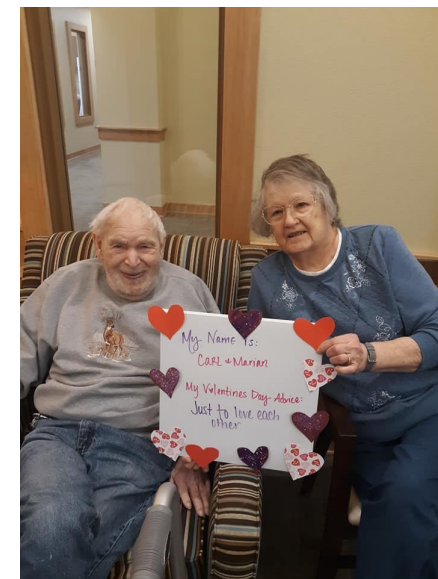 My Name Is:
Carl & Marian
My Valentines Day Advice:
Just to love each
other